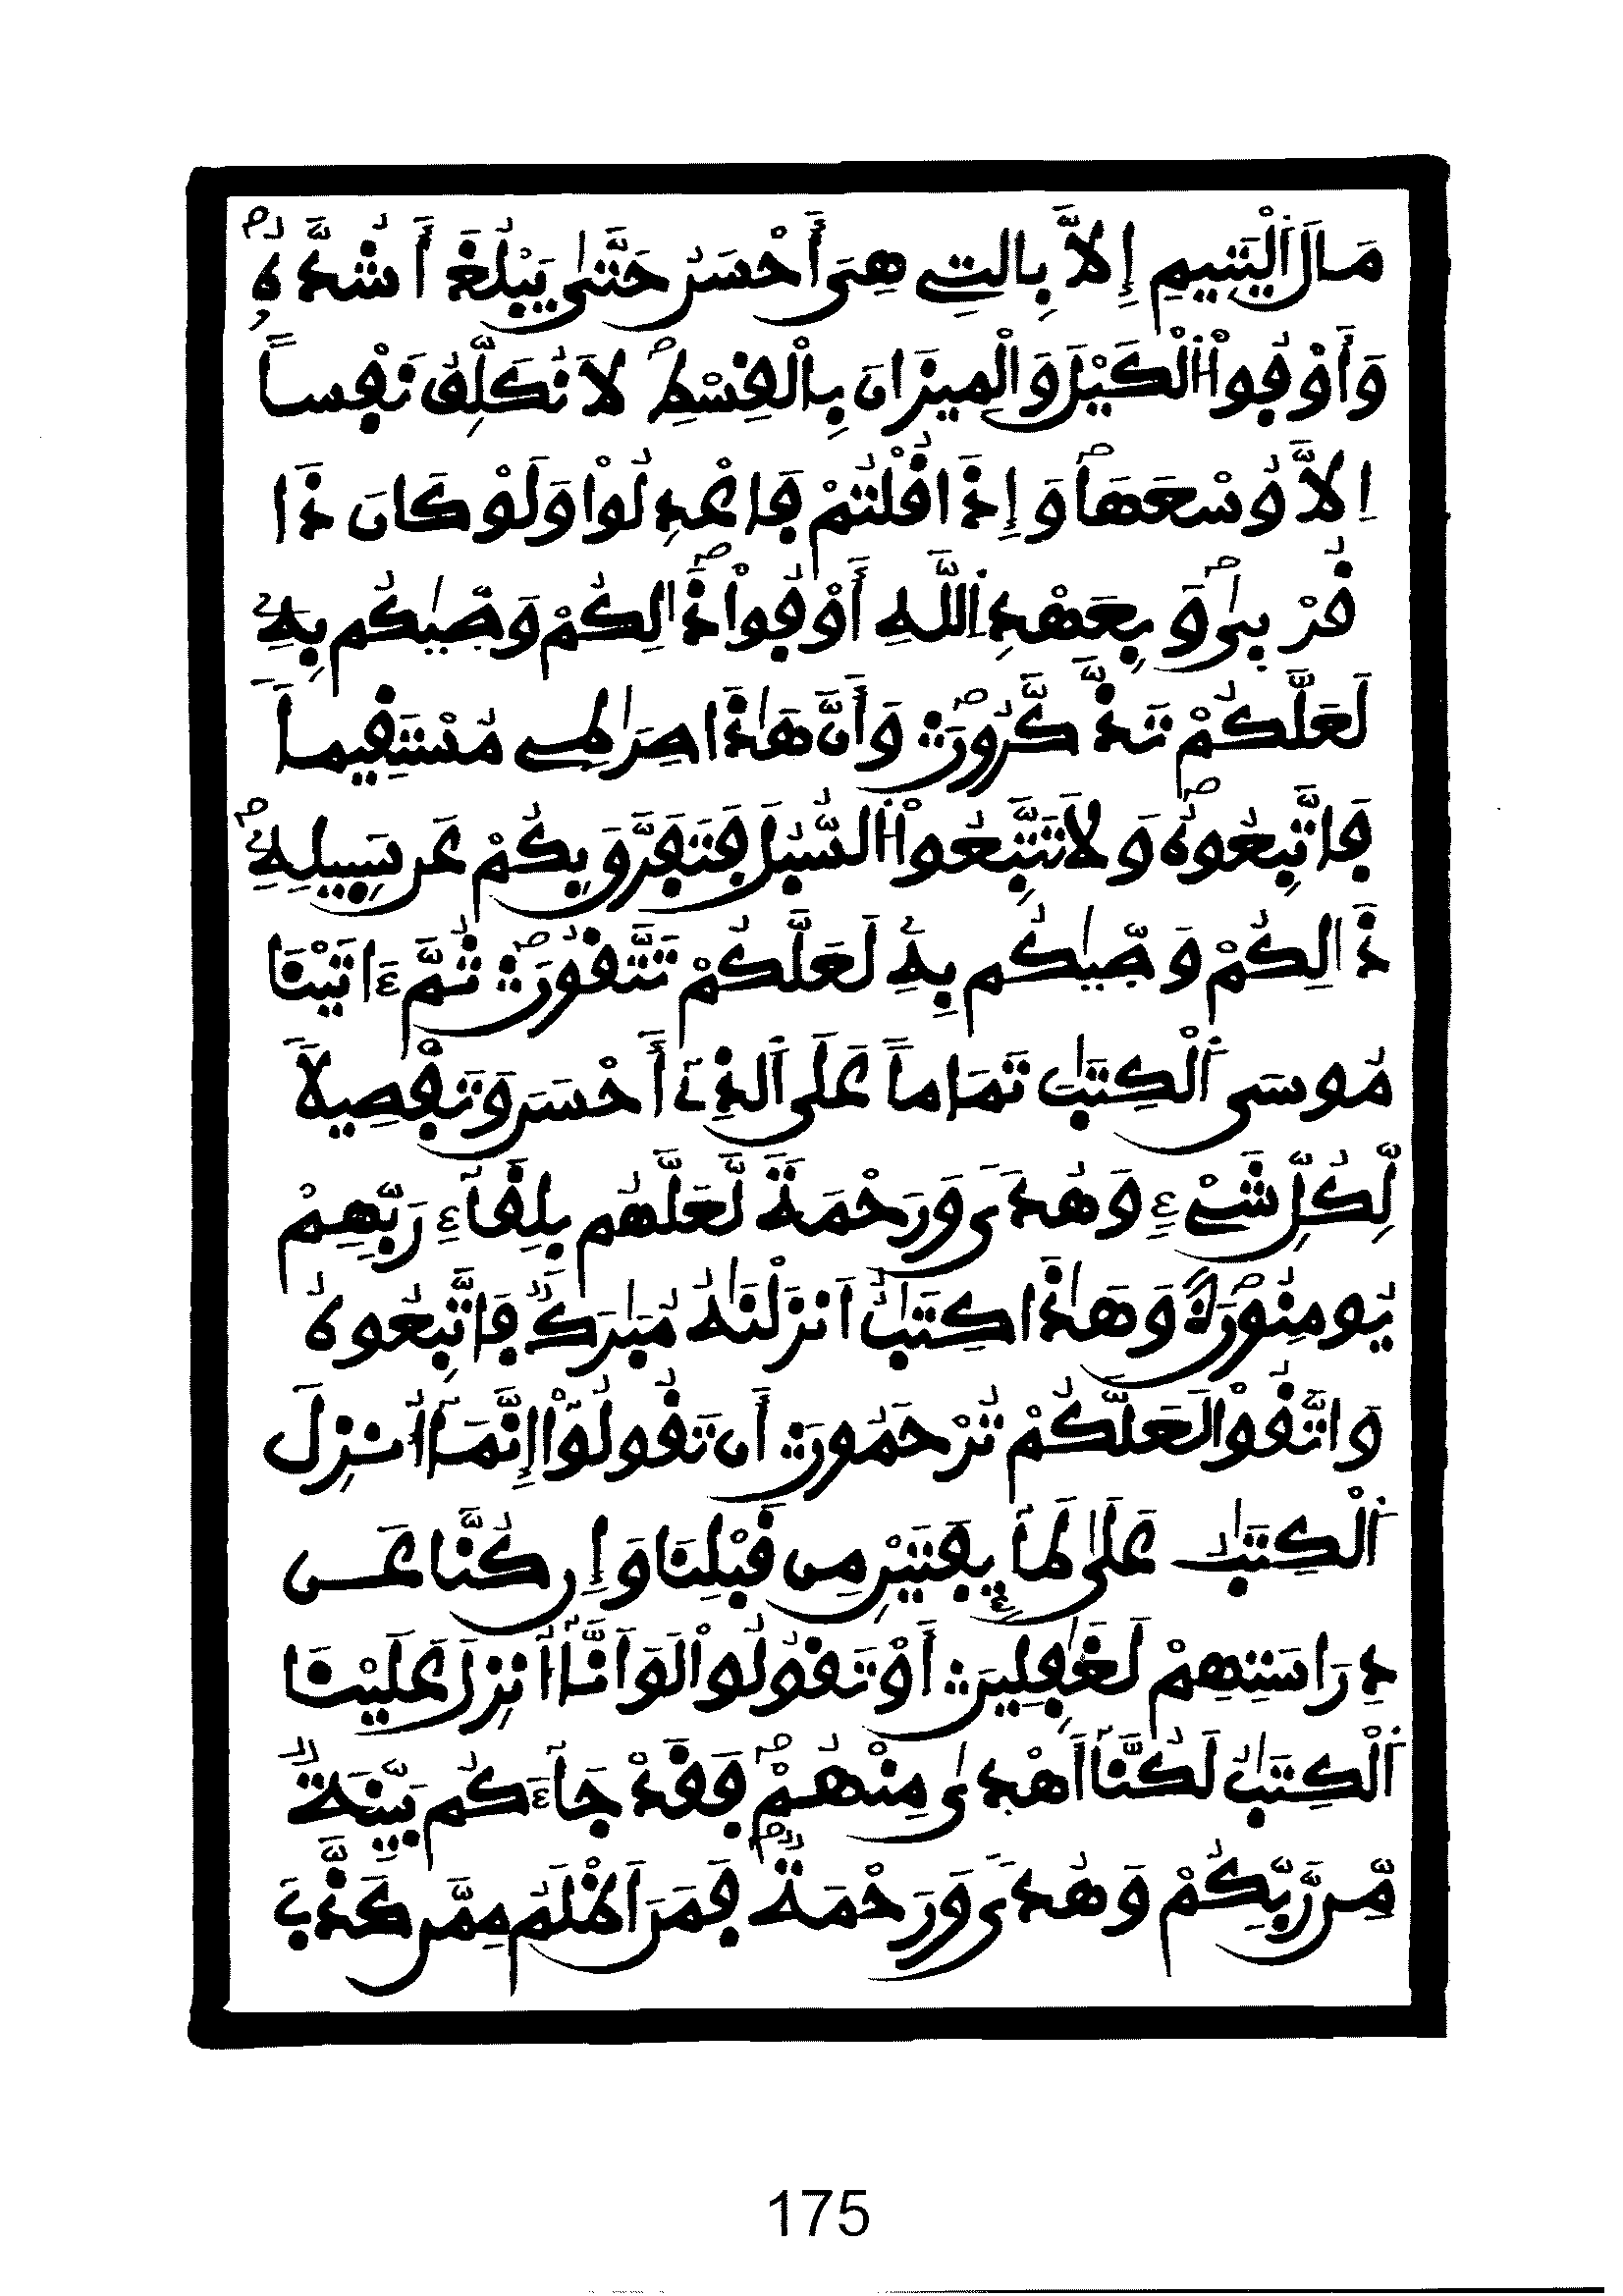 مَالَ اَ۬لْيَتِيمِ إِلَّا بِالتِے هِيَ أَحْسَنُ حَتَّىٰ يَبْلُغَ أَشُدَّهُۥۖ
وَأَوْفُواْ اُ۬لْكَيْلَ وَالْمِيزَانَ بِالْقِسْطِۖ لَا نُكَلِّفُ نَفْساً
اِلَّا وُسْعَهَاۖ وَإِذَا قُلْتُمْ فَاعْدِلُواْ وَلَوْ كَانَ ذَا
قُرْبىٰۖ وَبِعَهْدِ اِ۬للَّهِ أَوْفُواْۖ ذَالِكُمْ وَصّ۪يٰكُم بِهِۦ
لَعَلَّكُمْ تَذَّكَّرُونَۖ وَأَنَّ هَٰذَا صِرَاطِے مُسْتَقِيماً
فَاتَّبِعُوهُۖ وَلَا تَتَّبِعُواْ اُ۬لسُّبُلَ فَتَفَرَّقَ بِكُمْ عَن سَبِيلِهِۦۖ
ذَالِكُمْ وَصّ۪يٰكُم بِهِۦ لَعَلَّكُمْ تَتَّقُونَۖ ثُمَّ ءَاتَيْنَا
مُوسَى اَ۬لْكِتَٰبَ تَمَاماً عَلَى اَ۬لذِےٓ أَحْسَنَ وَتَفْصِيلًا
لِّكُلِّ شَےْءٍ وَهُدىً وَرَحْمَةً لَّعَلَّهُم بِلِقَآءِ رَبِّهِمْ
يُومِنُونَۖ وَهَٰذَا كِتَٰبٌ اَنزَلْنَٰهُ مُبَٰرَكٌ فَاتَّبِعُوهُ
وَاتَّقُواْ لَعَلَّكُمْ تُرْحَمُونَ أَن تَقُولُوٓاْ إِنَّمَآ أُنزِلَ
اَ۬لْكِتَٰبُ عَلَىٰ طَآئِفَتَيْنِ مِن قَبْلِنَا وَإِن كُنَّا عَن
دِرَاسَتِهِمْ لَغَٰفِلِينَ أَوْ تَقُولُواْ لَوَ اَنَّآ أُنزِلَ عَلَيْنَا
اَ۬لْكِتَٰبُ لَكُنَّآ أَهْدىٰ مِنْهُمْۖ فَقَدْ جَآءَكُم بَيِّنَةٌ
مِّن رَّبِّكُمْ وَهُدىً وَرَحْمَةٌۖ فَمَنَ اَظْلَمُ مِمَّن كَذَّبَ
175